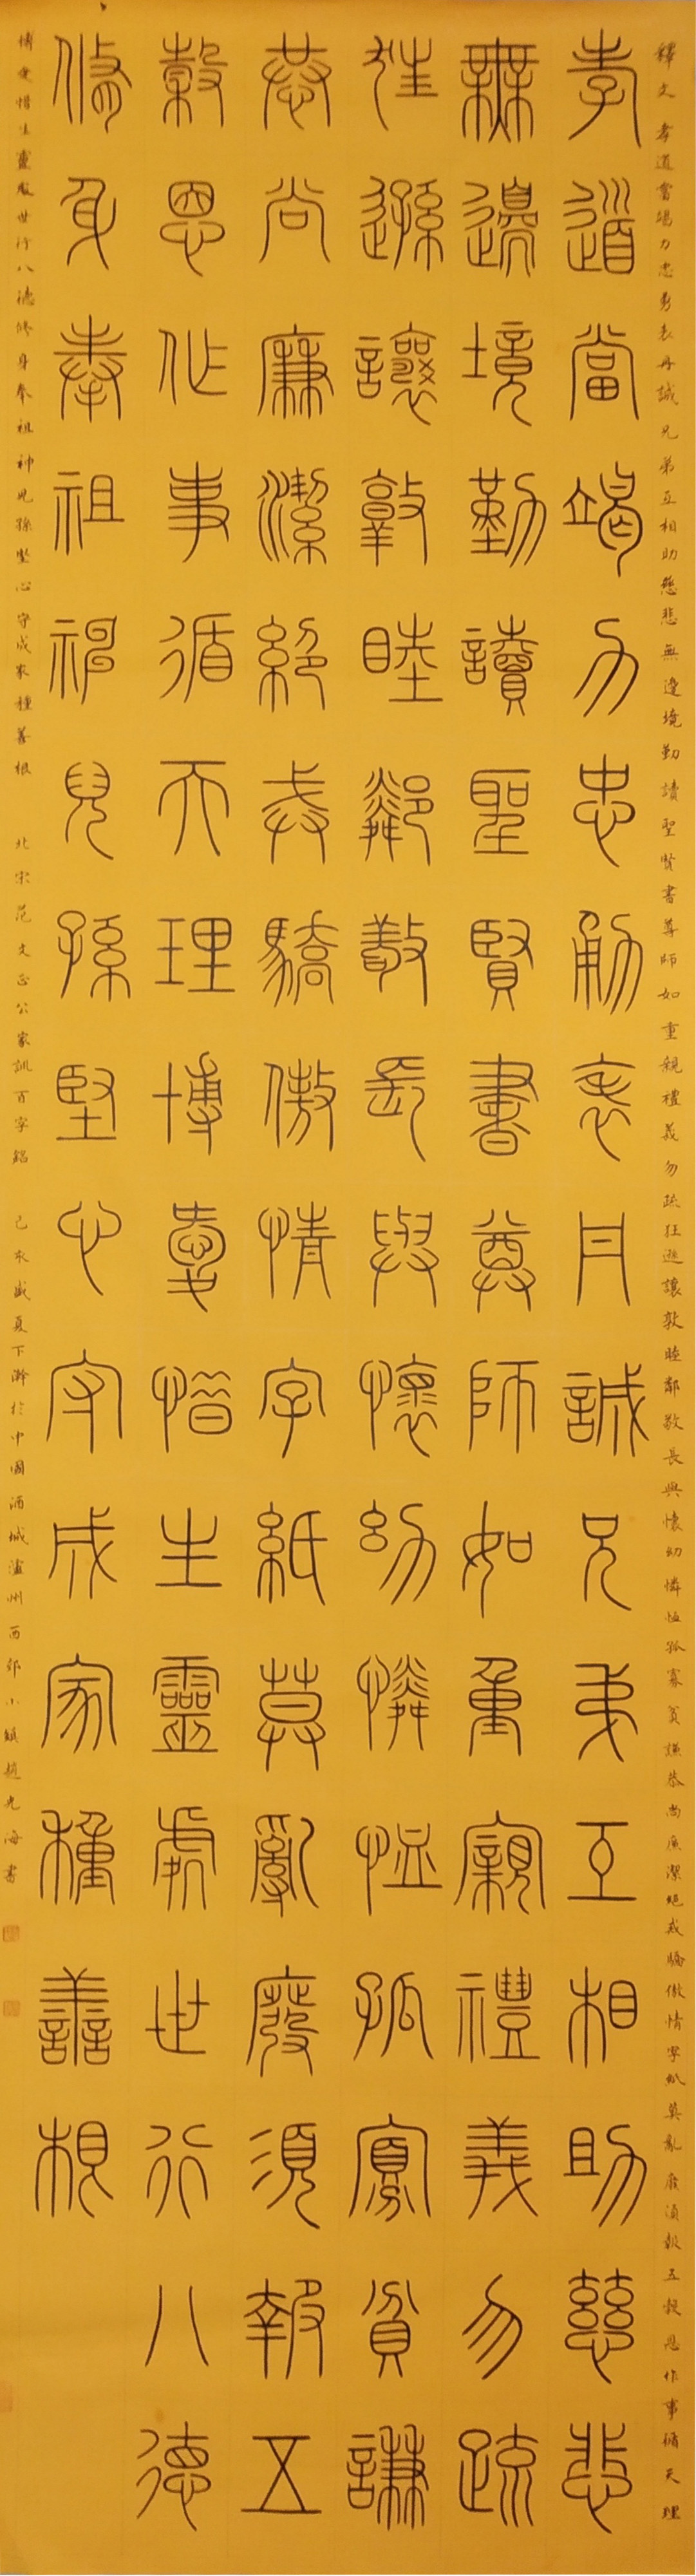 釋文 孝道當竭力忠勇表丹誠兄弟互相助慈悲無邊境勤讀聖賢書尊師如重親禮義勿疏狂遜讓敦睦鄰敬長與懷幼憐恤孤寡貧謙恭尚廉潔絕戒驕傲情字紙莫亂廢須報五穀恩作事循天理
孝道當竭力忠勇表丹誠兄弟互相助慈悲
無邊境勤讀聖賢書尊師如重親禮義勿疏
狂遜讓敦睦鄰敬長與懷幼憐恤孤寡貧謙
恭尚廉潔絕戒驕傲情字紙莫亂廢須報五
穀恩作事循天理博愛惜生靈處世行八德
修身奉祖神兒孫堅心守成家種善根
博愛惜生靈處世行八德修身奉祖神兒孫堅心守成家種善根 北宋范文正公家訓百字銘 己亥盛夏下澣於中國酒城瀘州西郊小鎮趙光海書